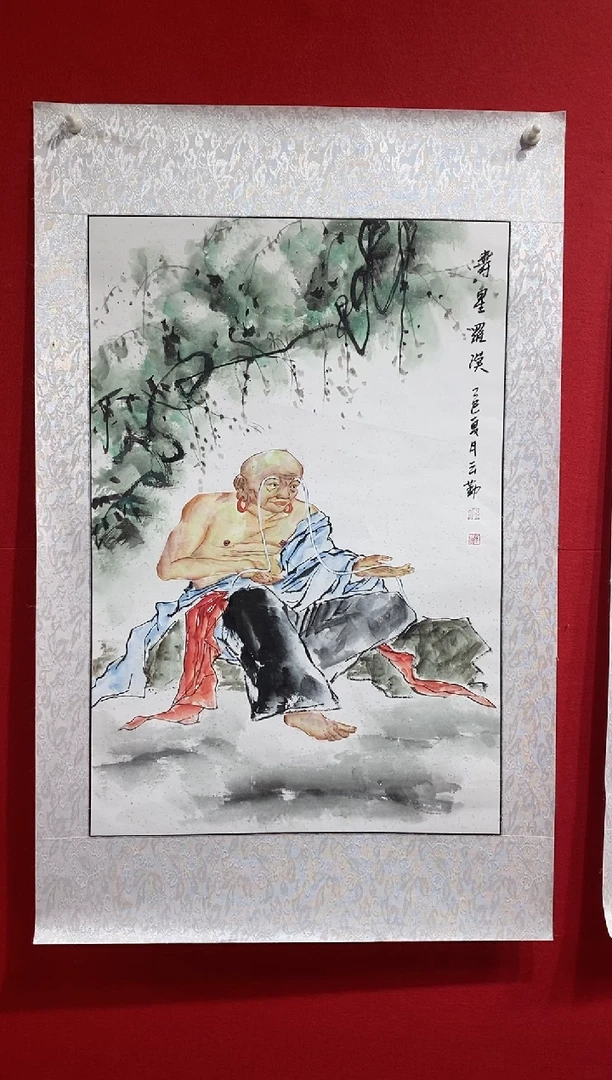 壽星羅漢
乙巳夏月云勤